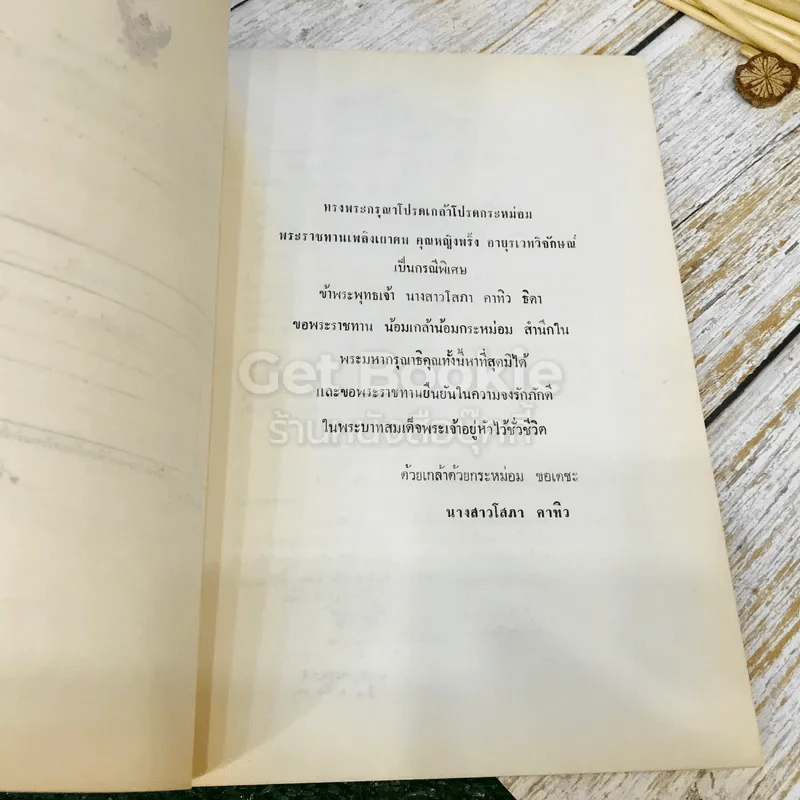 ทรงพระกรุณาโปรดเกล้าโปรดกระหม่อม
พระราชทานเพลิงเผาศพ คุณหญิงพริ้ง อายุรเวทวิจักษณ์
เป็นกรณีพิเศษ
ข้าพระพุทธเจ้า นางสาวโสภา คาทิว ธิดา
ขอพระราชทาน น้อมเกล้าน้อมกระหม่อม สำนึกใน
พระมหากรุณาธิคุณทั้งนี้หาที่สุดมิได้
Get Bookie
และขอพระราชทานยืนยันในความจงรักภักดี
ร้านหนังสือบุ๊คกี้
ในพระบาทสมเด็จพระเจ้าอยู่หัวไว้ชั่วชีวิต
ด้วยเกล้าด้วยกระหม่อม ขอเดชะ
นางสาวโสภา คาทิว